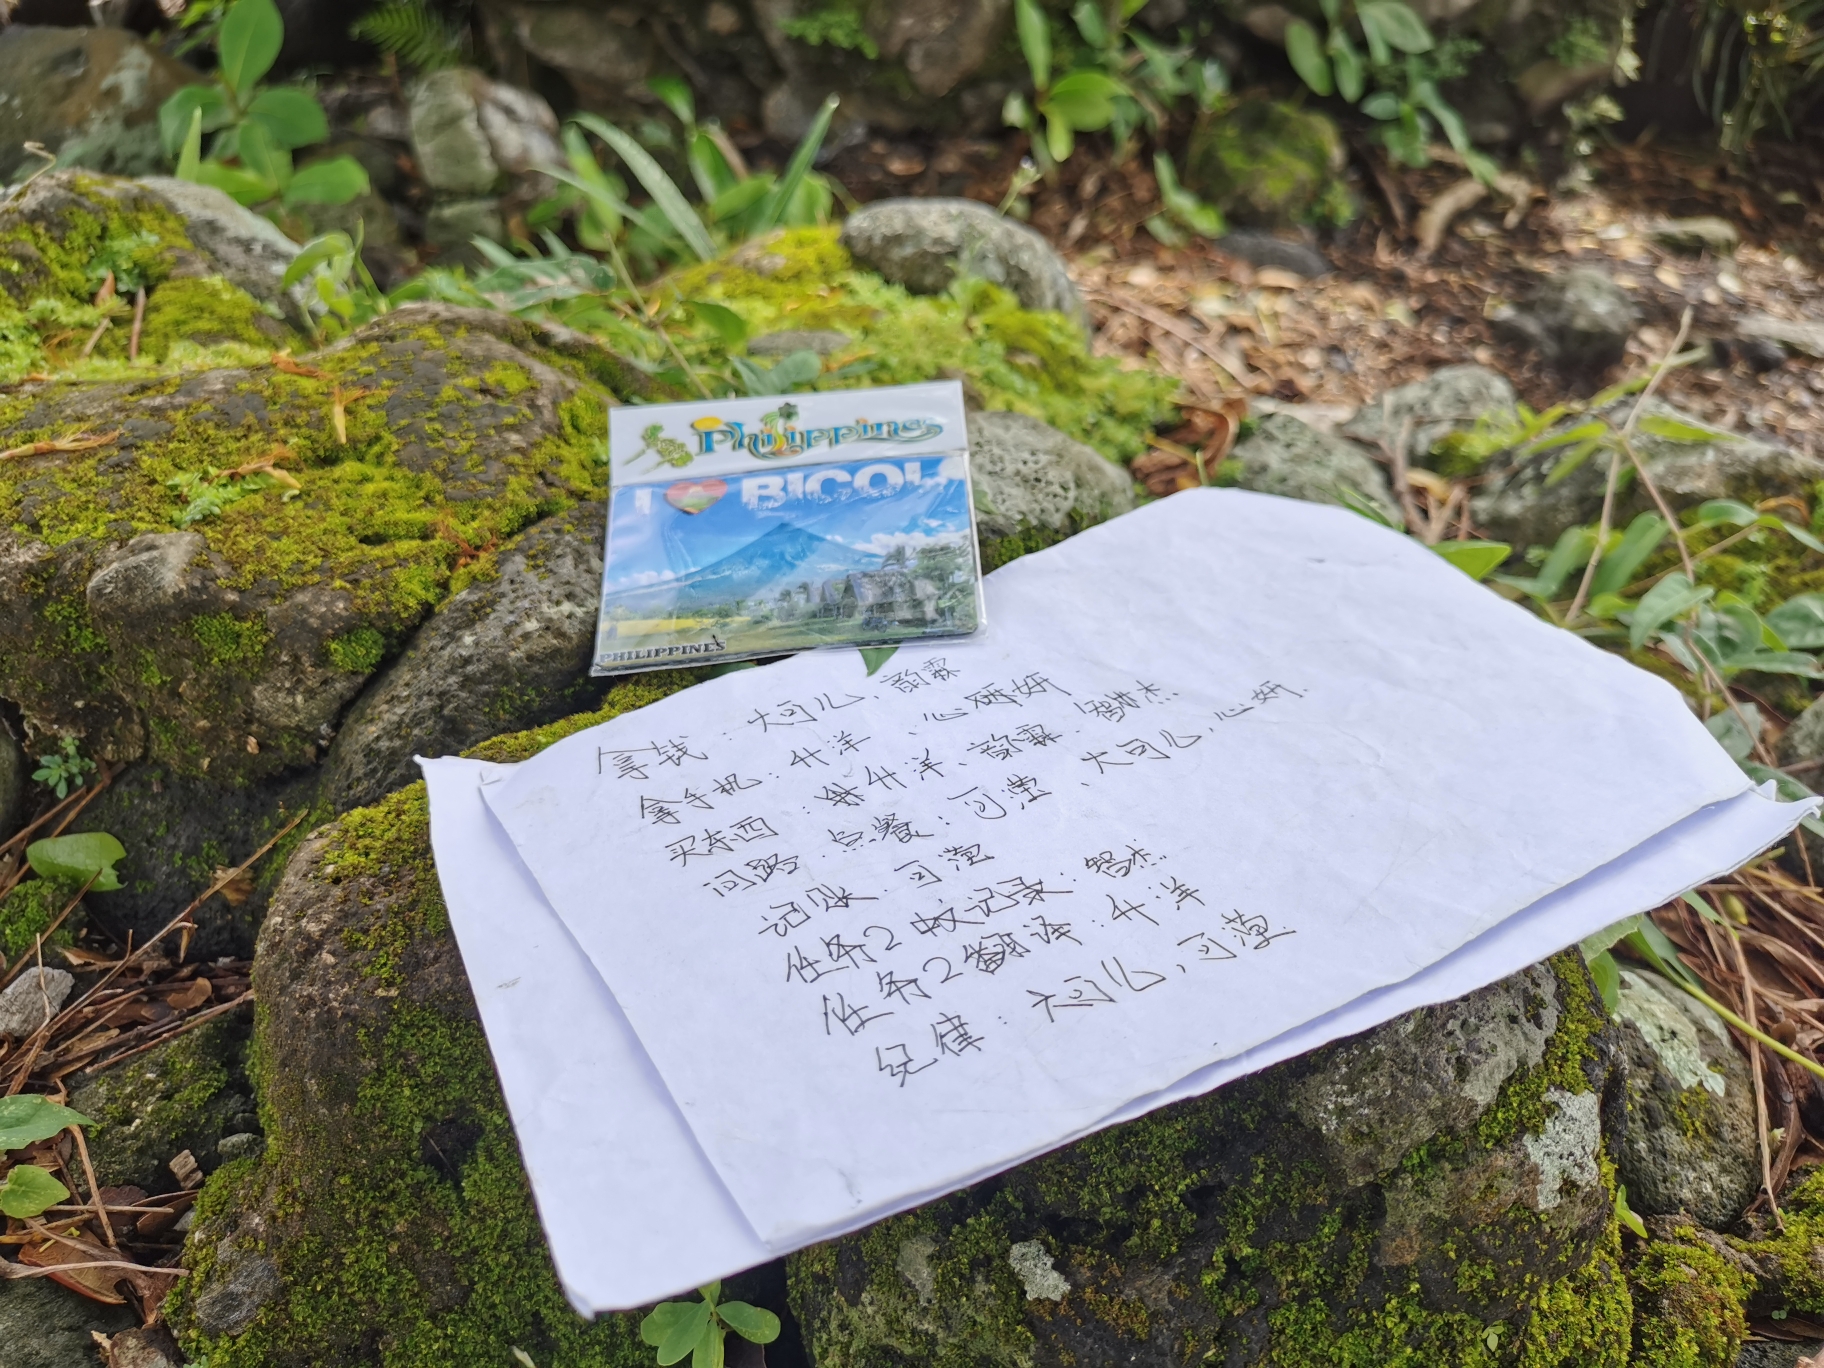 Philippines
I BICOL
PHILIPPINES
拿钱：大可儿、韵霖
拿手机：升洋、心妍
买东西：升洋、韵霖、智杰、
问路、点餐：可滢、大可儿、心妍.
记账：可滢
任务2 中文记录：智杰
任务2翻译：升洋
纪律：大可儿，可滢